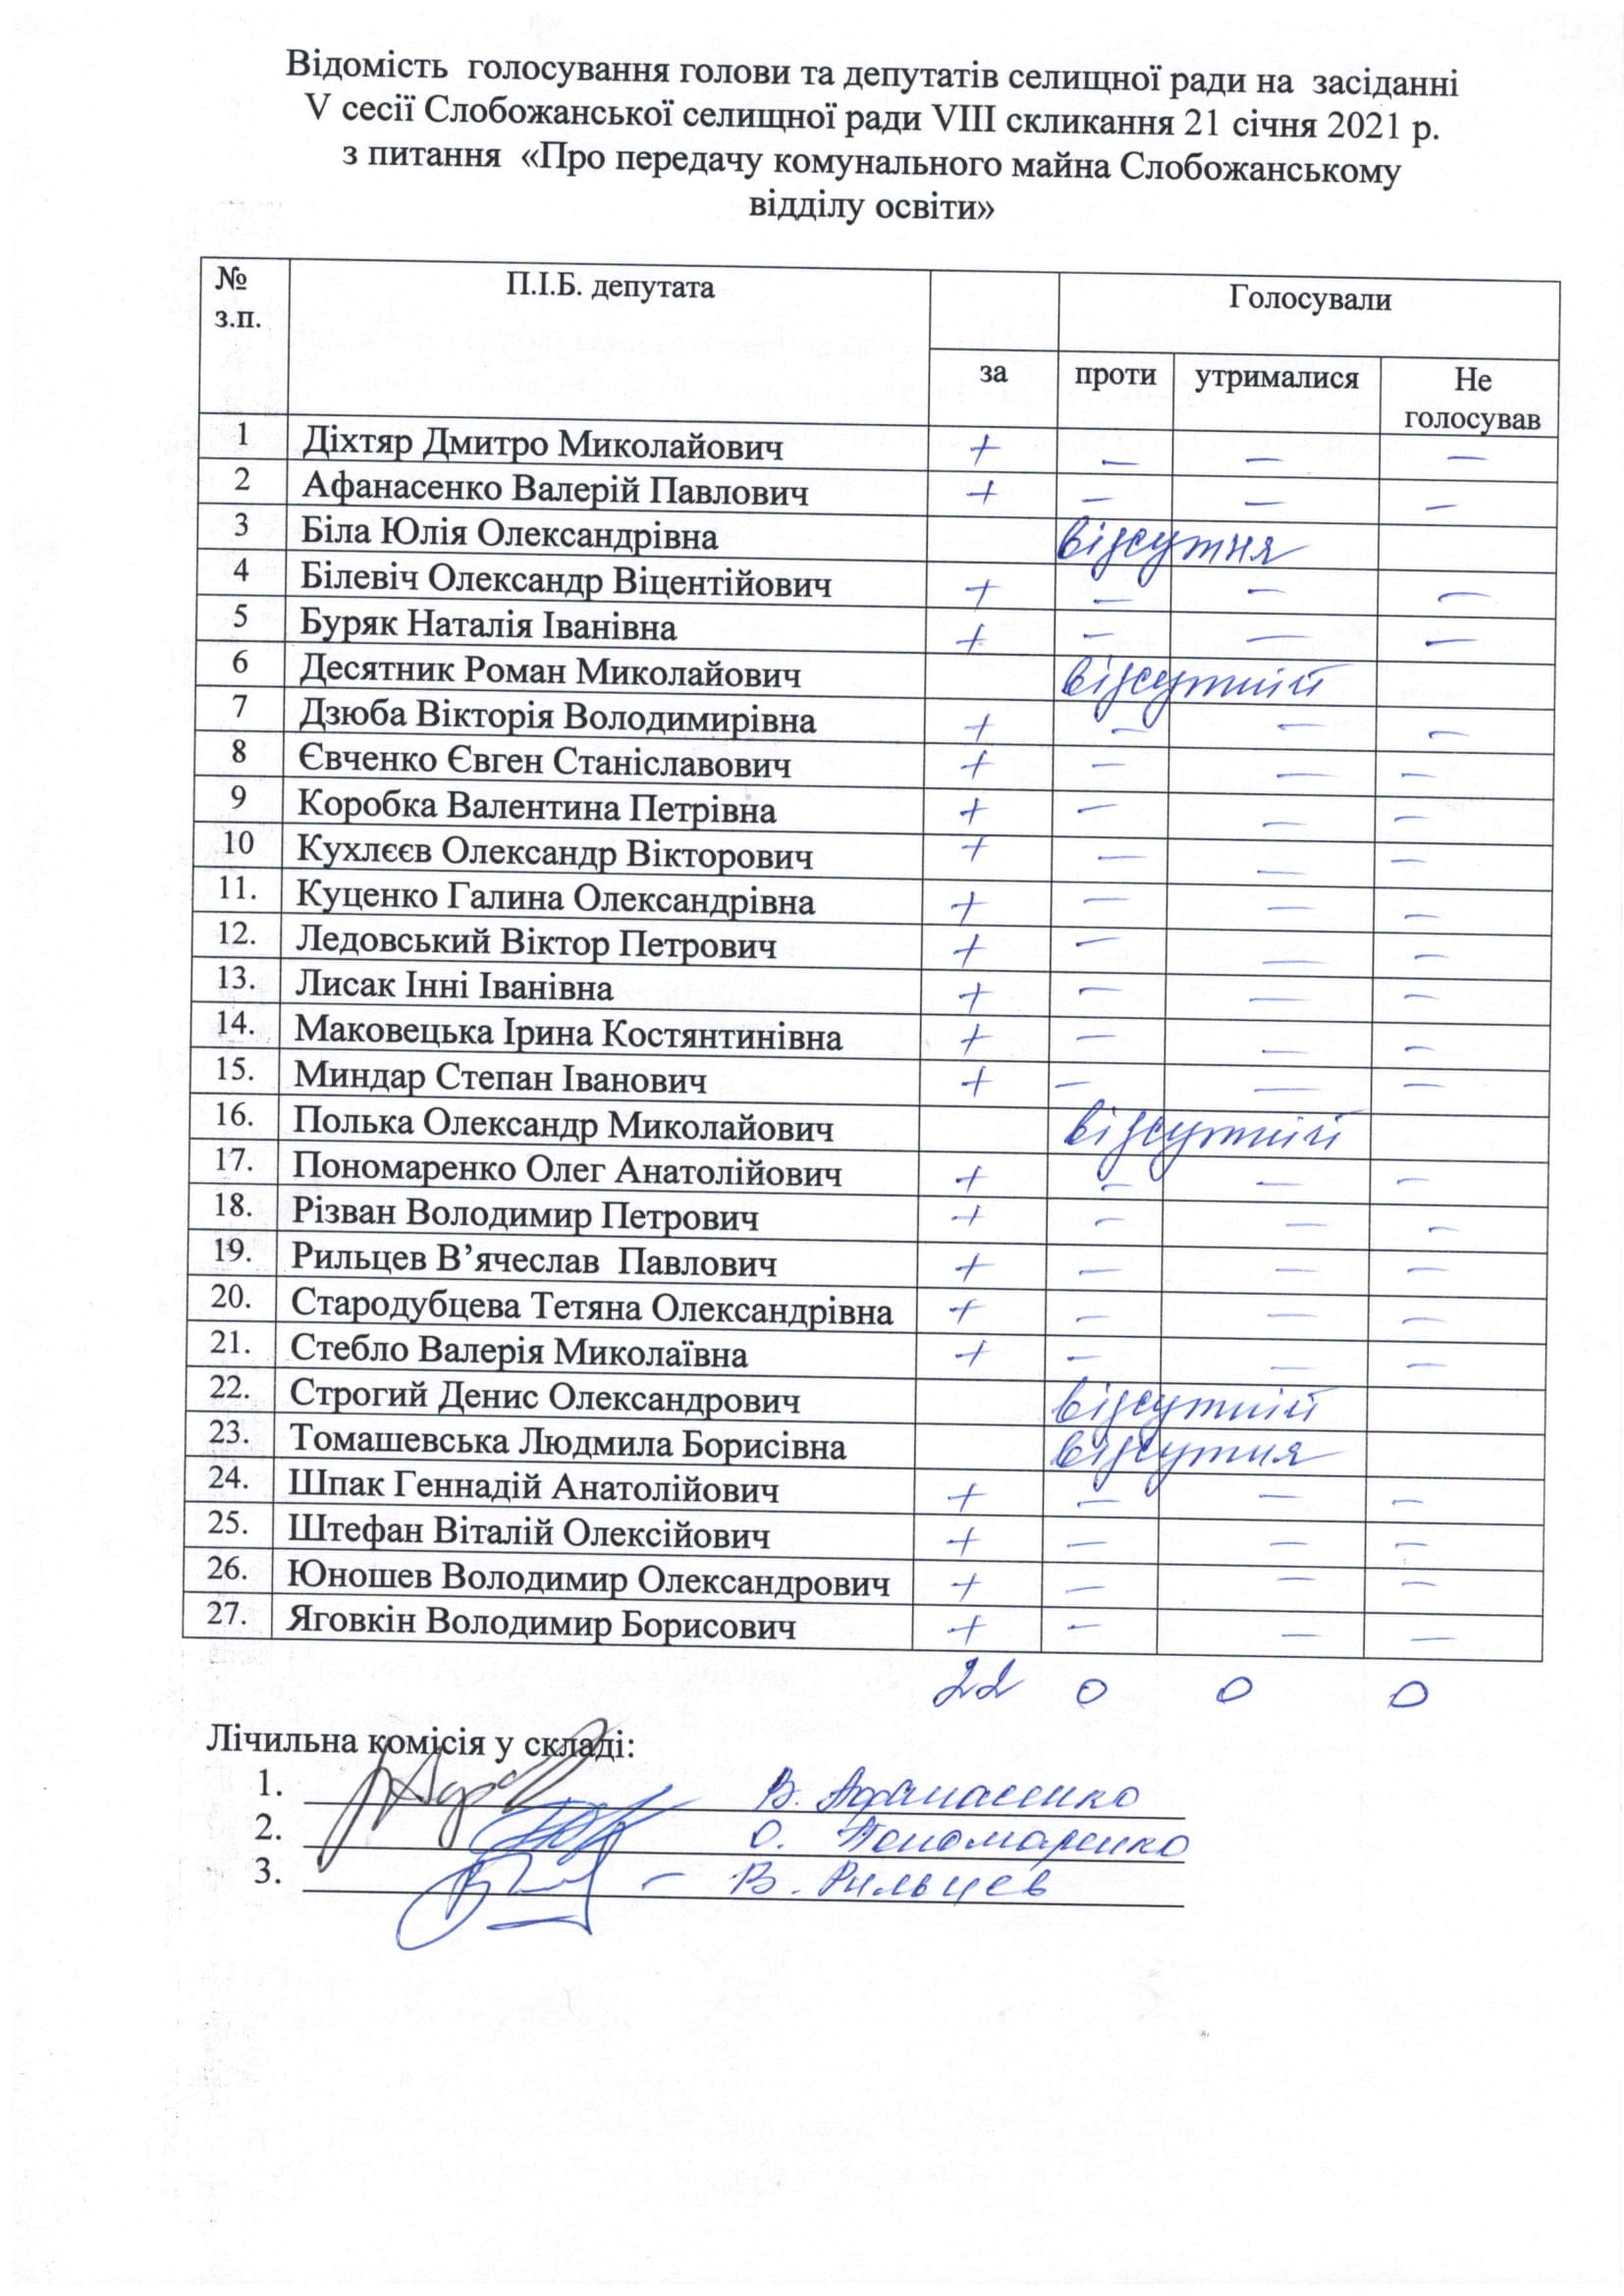 Відомість голосування голови та депутатів селищної ради на засіданні
V сесії Слобожанської селищної ради VIII скликання 21 січня 2021 р.
з питання «Про передачу комунального майна Слобожанському
відділу освіти»
№ з.п. П.І.Б. депутата Голосували
за проти утрималися Не голосував
1 Діхтяр Дмитро Миколайович + — — —
2 Афанасенко Валерій Павлович + — — —
3 Біла Юлія Олександрівна відсутня
4 Білевіч Олександр Віцентійович + — — —
5 Буряк Наталія Іванівна + — — —
6 Десятник Роман Миколайович відсутній
7 Дзюба Вікторія Володимирівна + — — —
8 Євченко Євген Станіславович + — — —
9 Коробка Валентина Петрівна + — — —
10 Кухлєєв Олександр Вікторович + — — —
11. Куценко Галина Олександрівна + — — —
12. Ледовський Віктор Петрович + — — —
13. Лисак Інні Іванівна + — — —
14. Маковецька Ірина Костянтинівна + — — —
15. Миндар Степан Іванович + — — —
16. Полька Олександр Миколайович відсутній
17. Пономаренко Олег Анатолійович + — — —
18. Різван Володимир Петрович + — — —
19. Рильцев В’ячеслав Павлович + — — —
20. Стародубцева Тетяна Олександрівна + — — —
21. Стебло Валерія Миколаївна + — — —
22. Строгий Денис Олександрович відсутній
23. Томашевська Людмила Борисівна відсутня
24. Шпак Геннадій Анатолійович + — — —
25. Штефан Віталій Олексійович + — — —
26. Юношев Володимир Олександрович + — — —
27. Яговкін Володимир Борисович + — — —
22 0 0 0
Лічильна комісія у складі:
1. В. Афанасенко
2. О. Пономаренко
3. — В. Рильцев